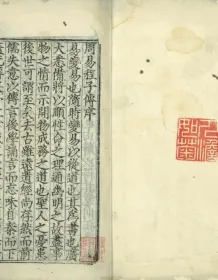 周易程子傳序
易變易也隨時變易以從道也其爲書也廣
大悉備將以順性命之理通幽明之故盡事
物之情而示開物成務之道也聖人之憂患
後世可謂至矣去古雖遠遺經尚存然而前
儒失意以傳言後學誦言而忘味自秦而下